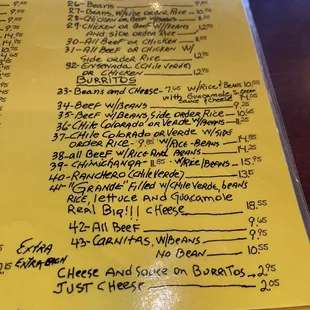 26- Beans
27- Beans w/side order Rice
28- Chicken or Beef w/Beans
29- Chicken or Beef w/Beans
and Side order Rice
30- All Beef or Chicken
31- All Beef or Chicken w/
Side order Rice 12.95
32- Ensenada (Chile Verde)
or Chicken 12.95
Burritos
33- Beans and Cheese- 7.65 w/Rice & Beans 10.55
with Guacamole & Cheese
34- Beef w/Beans 9.25
35- Beef w/Beans, Side order Rice
36- Chile Colorado or Verde w/Beans
37- Chile Colorado or Verde w/Side
order Rice - 9.95 w/Rice-Beans 14.85
38- all Beef w/Rice and Beans 14.25
39- Chimichanga- 11.85 - w/Rice/Beans 15.95
40- Ranchero (Chile Verde) 13.50
41- "Grande" Filled w/Chile Verde, beans
Rice, lettuce and Guacamole
Real Big!!! Cheese 18.55
42- All Beef 9.65
43- Carnitas, w/Beans 9.95
No Bean 10.55
Extra
Extra each
Cheese and Sauce on Burritos - 2.95
Just Cheese 2.05